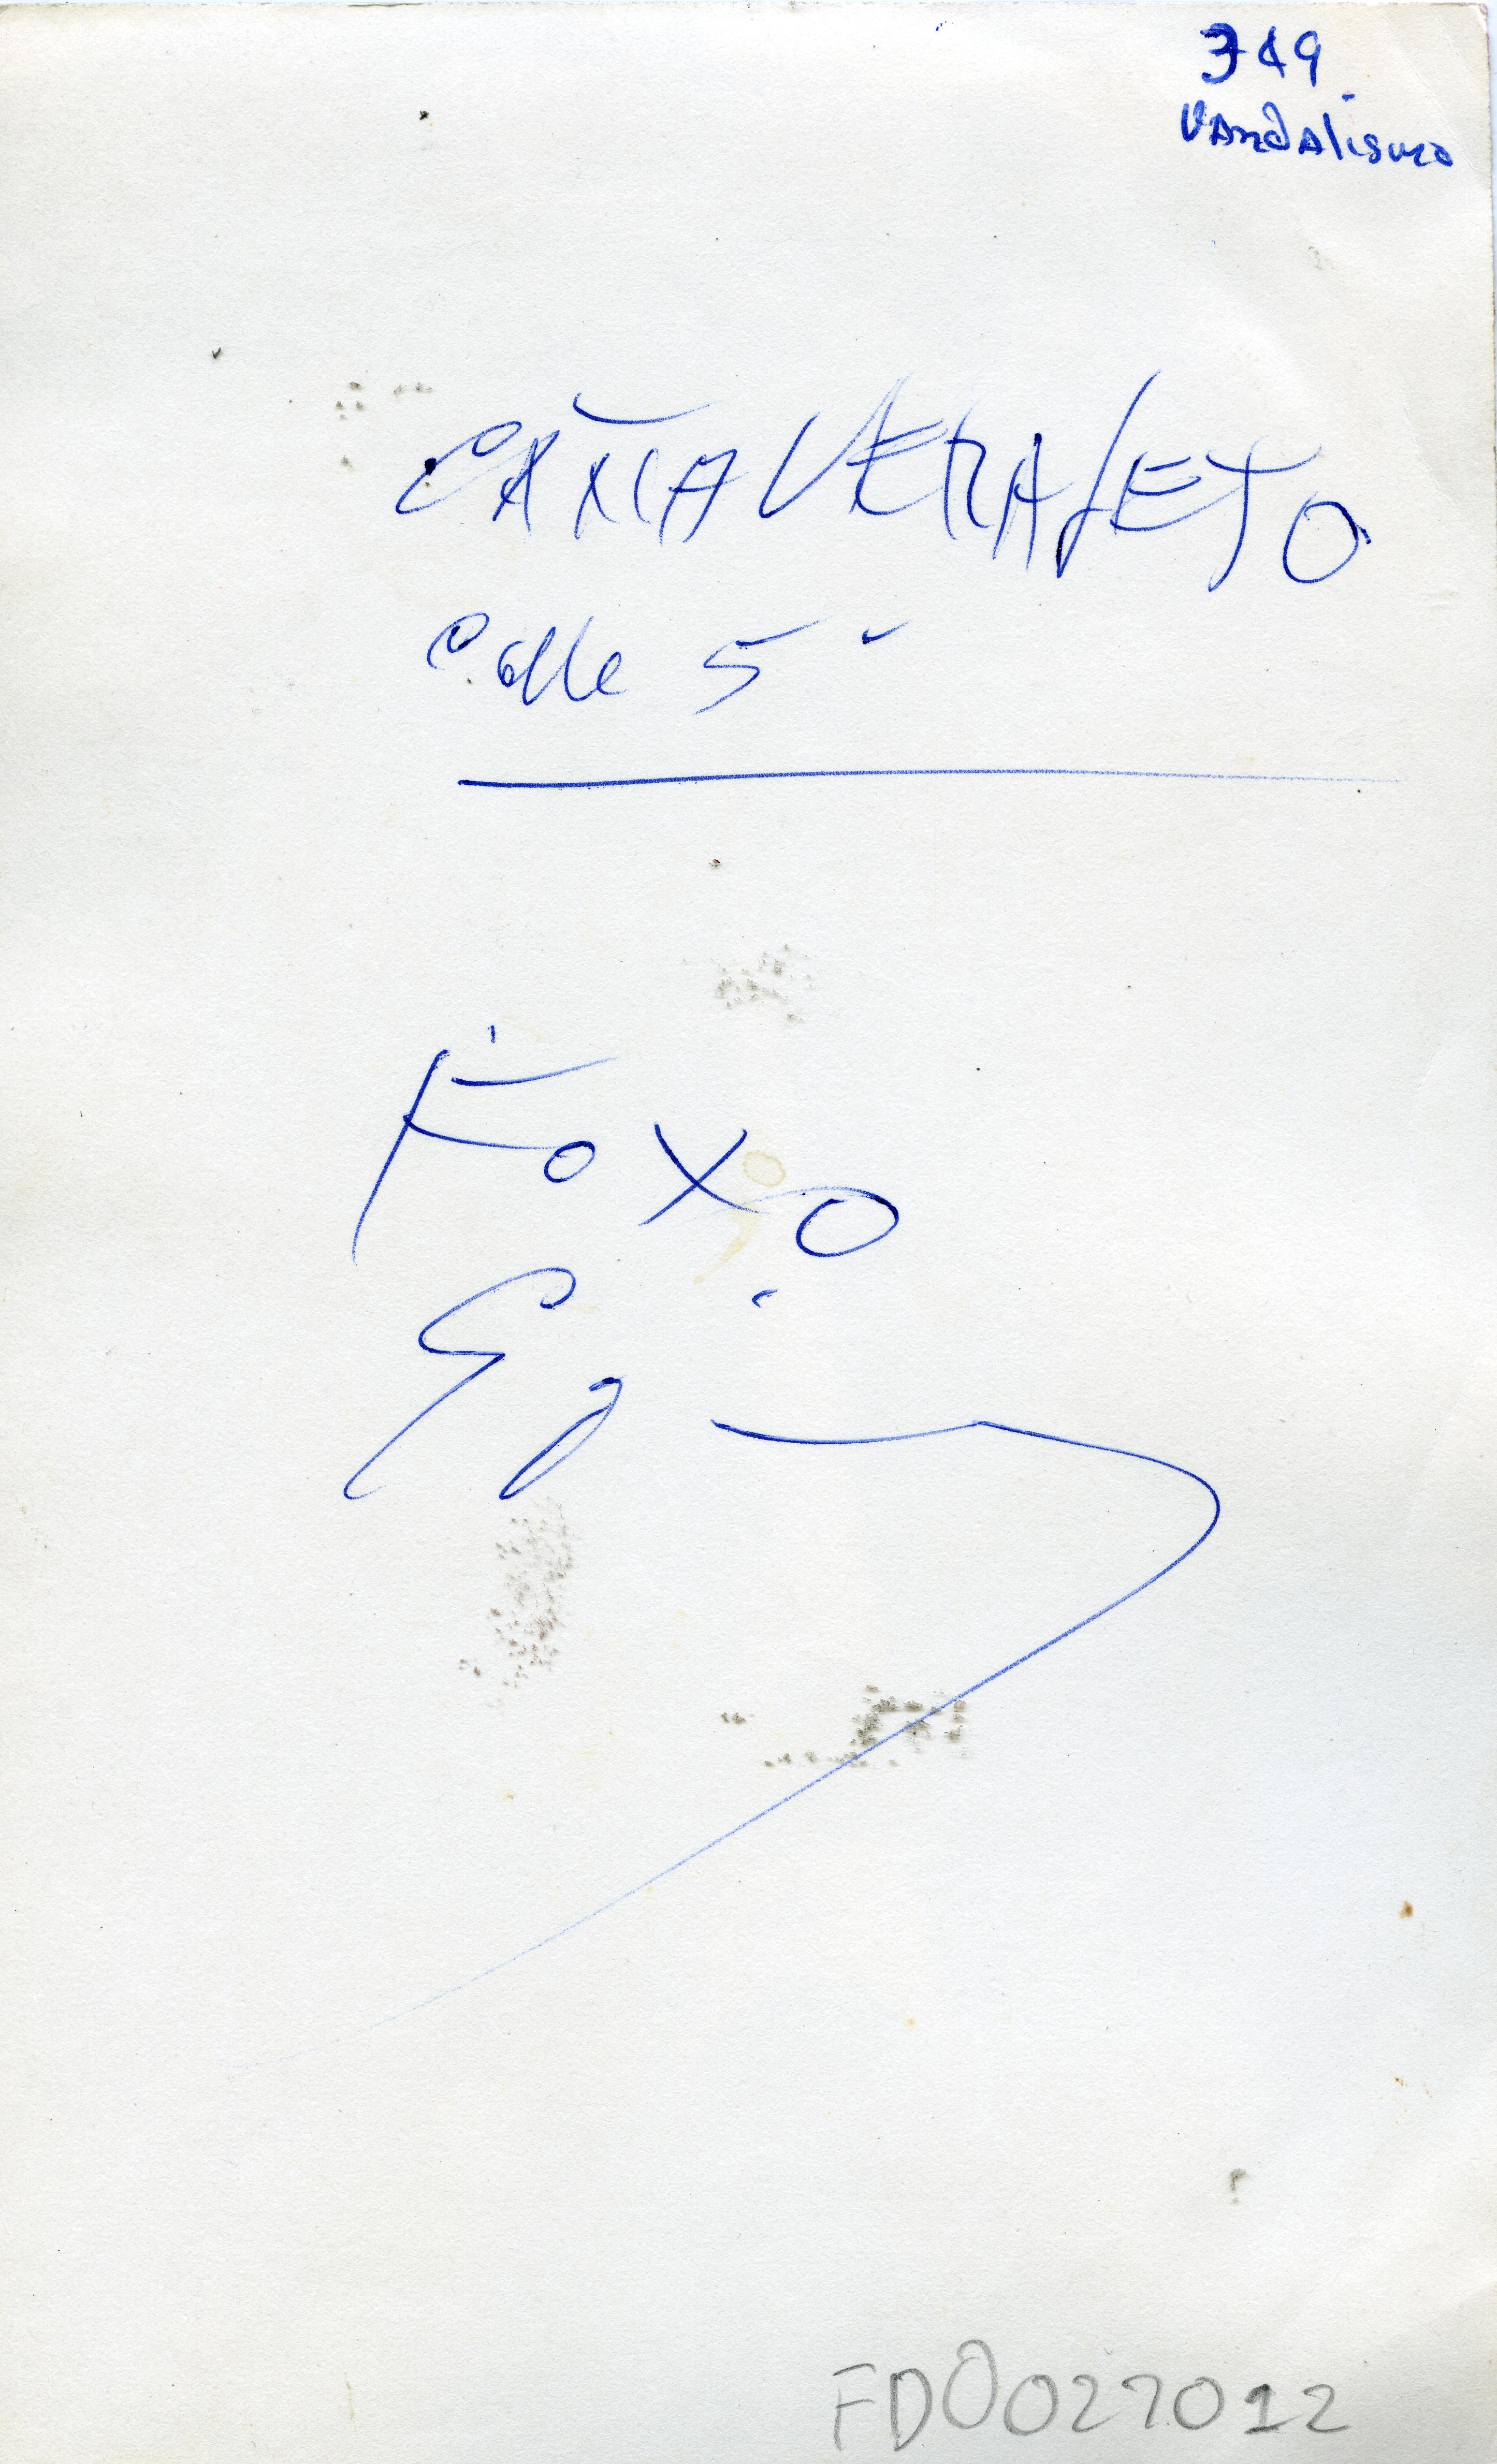 349
Vandalismo
CAÑAVERALEJO
Calle 5
FOXO
FD0027012